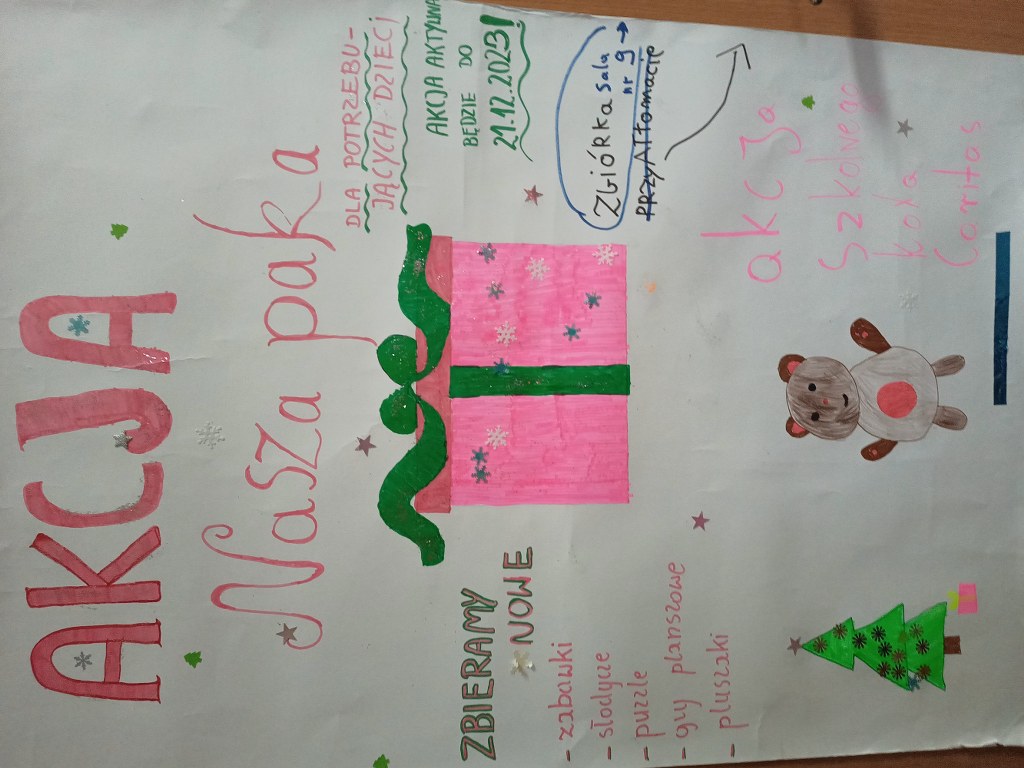 AKCJA
Nasza paka
DLA POTRZEBU-
JĄCYCH DZIECI
AKCJA AKTYWNA
BĘDZIE DO
21.12.2023!
ZBIERAMY
NOWE
- zabawki
- słodycze
- puzzle
- gry planszowe
- pluszaki
ZbiÓRKa sala
nr 9 →
akcja
szkolnego
koła
Caritas